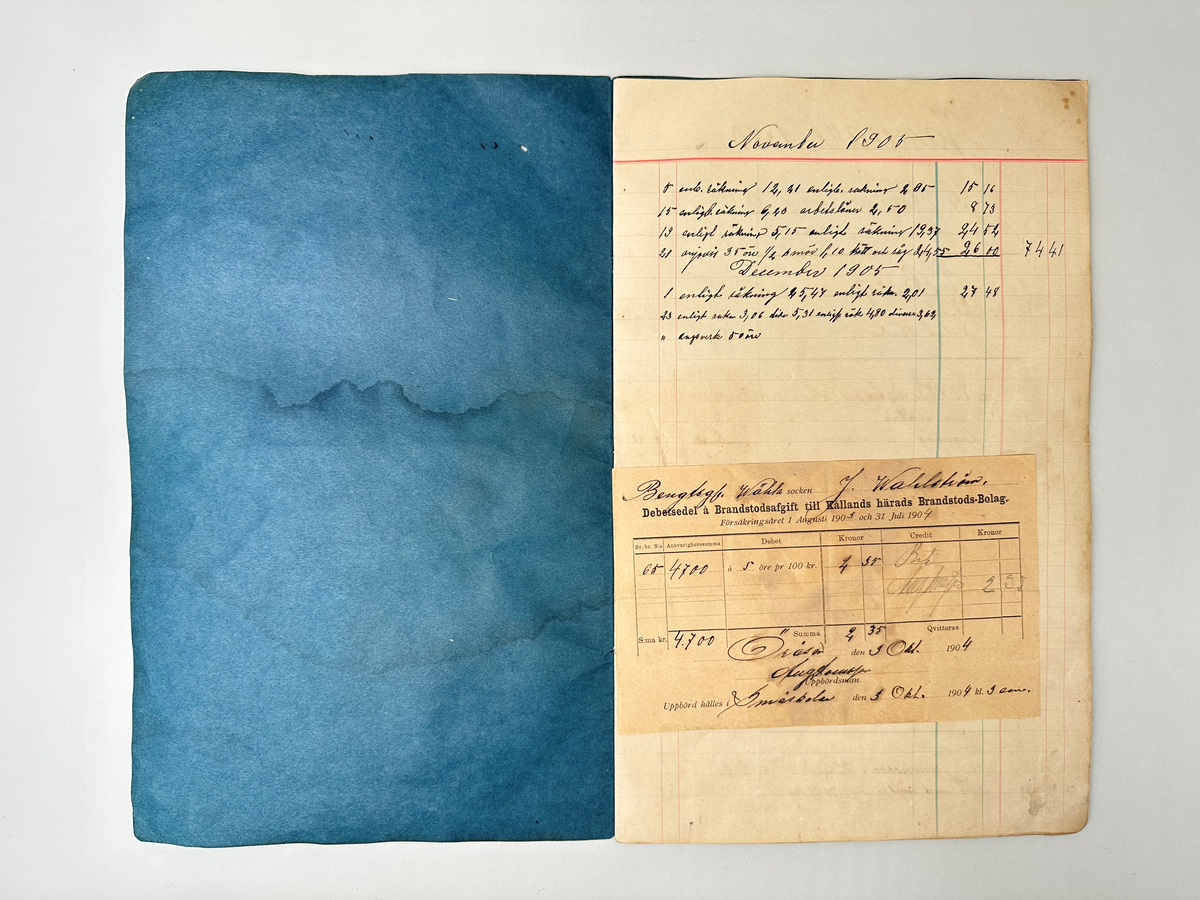 November 1905
8 enl. räkning 12,21 enligt. räkning 2 95 15 16
15 enligt räkning 6,23 arbetslöner 2,50 8 73
19 enligt räkning 5,15 enligt räkning 19,37 24 52
21 35 öre 1/2 smör 1,10 kött och 24,55 26 00 74 41
December 1905
1 enligt räkning 25,47 enligt räkn. 2,01 27 48
23 enligt räkn 3,06 dito 5,31 enligt räk 4,80 diverse 3,62,
" 50 öre
Bengtsg. Wähla socken J. Wahlström.
Debetsedel å Brandstodsafgift till Kållands härads Brandstods-Bolag.
Försäkringsåret 1 Augusti 1903 och 31 Juli 1904
Br.-br. N:o Ansvarighetssumma Debet Kronor Credit Kronor
65 4700 à 5 öre pr 100 kr. 2 35 Bet 2 35
S:ma kr. 4.700 " Summa 2 35 Qvitteras
den 3 Okt. 1904
Uppbördsman
Uppbörd hålles i Småskolan den 3 Okt. 1904 kl. 3 em.